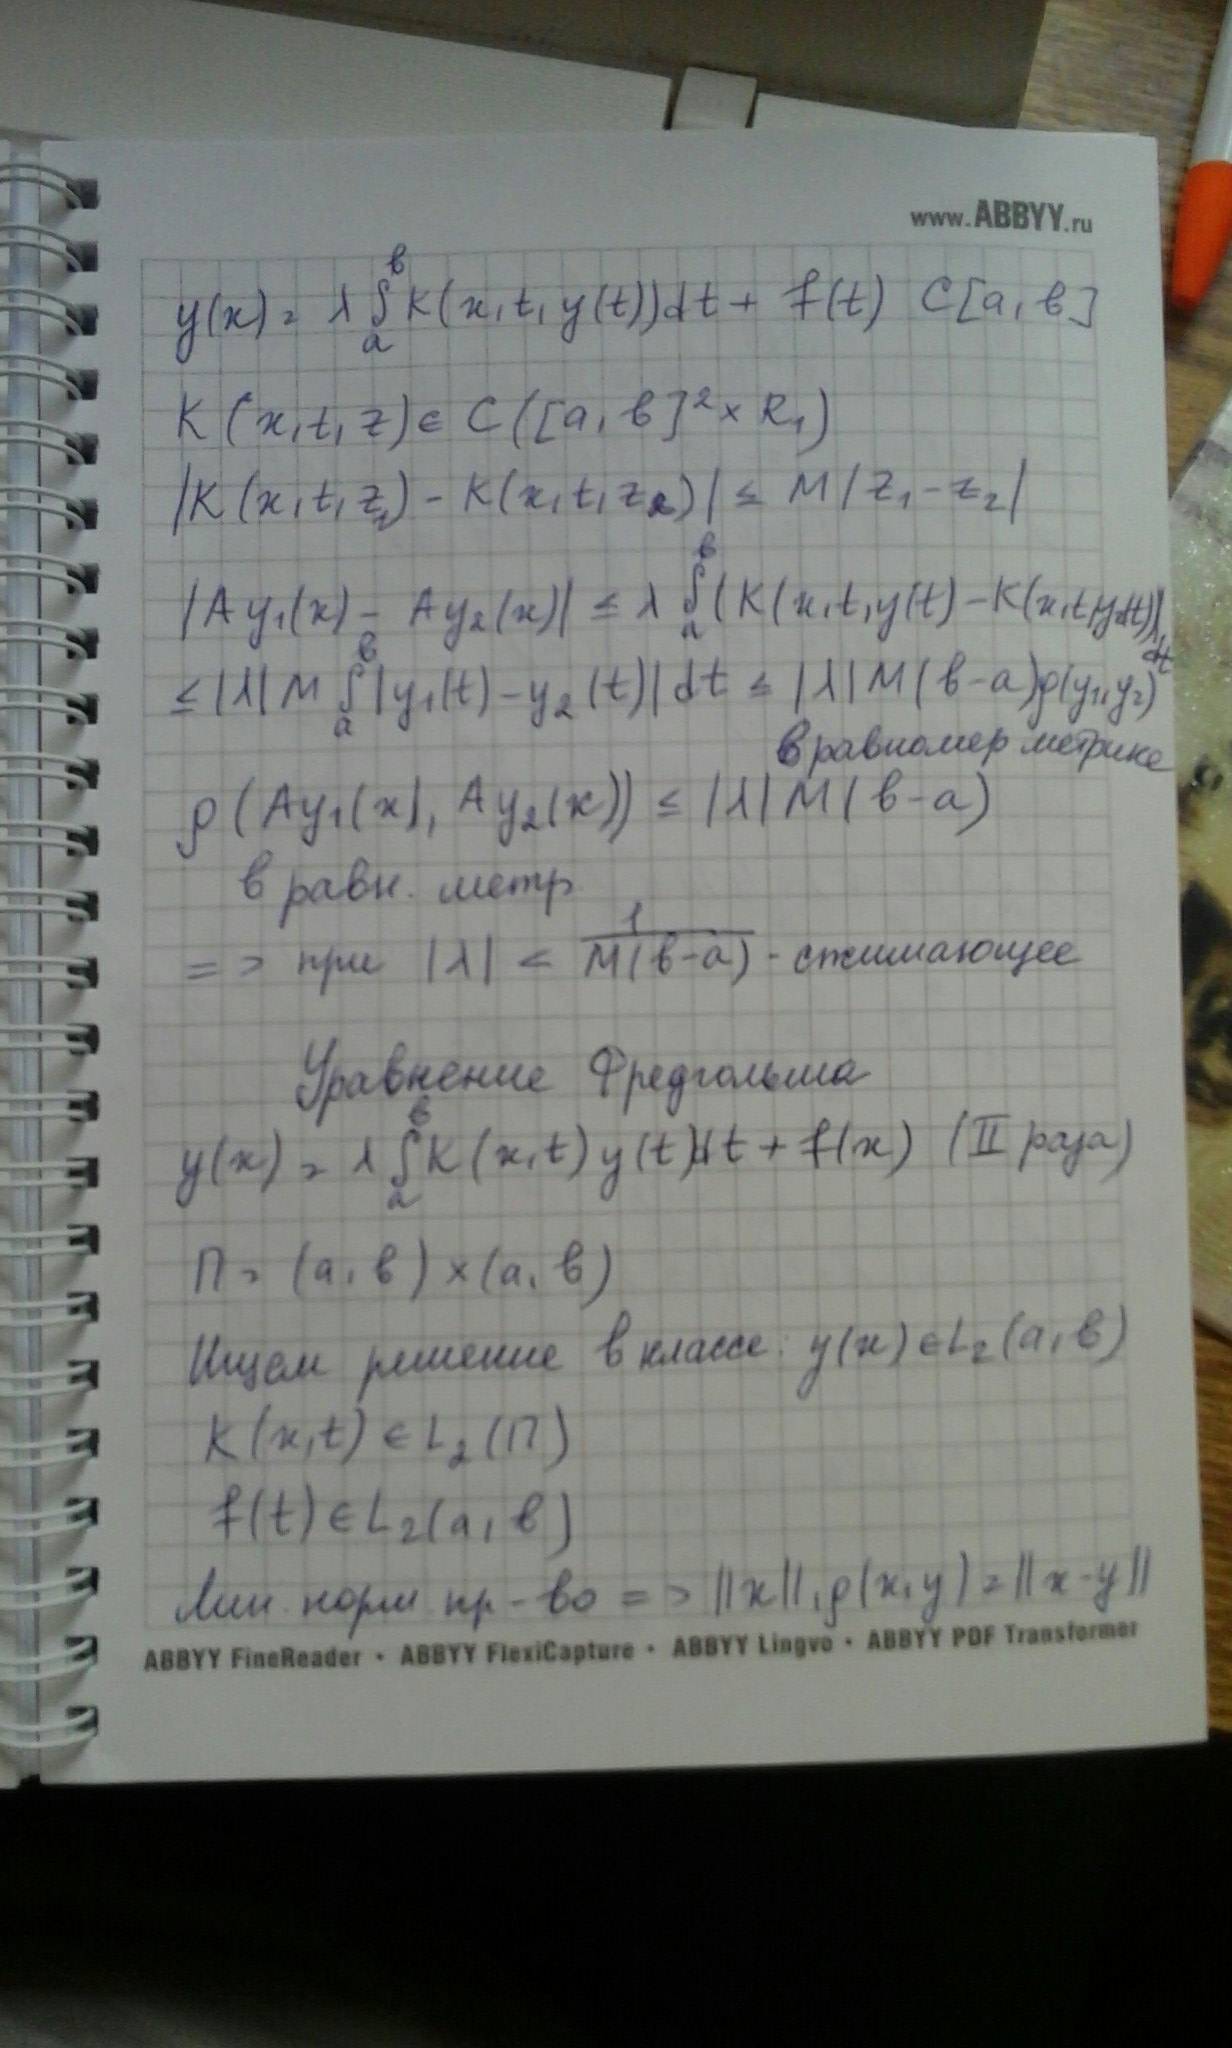 www.ABBYY.ru
y(x) = λ ∫ₐᵇ K(x,t,y(t))dt + f(t) C[a,b]
K(x,t,z) ∈ C([a,b]² × R₁)
|K(x,t,z₁) - K(x,t,z₂)| ≤ M|z₁-z₂|
|Ay₁(x) - Ay₂(x)| ≤ λ ∫ₐᵇ (K(x,t,y(t) - K(x,t,y₂(t))|dt
≤ |λ| M ∫ₐᵇ |y₁(t) - y₂(t)| dt ≤ |λ| M (b-a)ρ(y₁,y₂)
в равномер метрике
ρ(Ay₁(x), Ay₂(x)) ≤ |λ| M (b-a)
в равн. метр.
=> при |λ| < 1/M(b-a) - сжимающее
Уравнение Фредгольма
y(x) = λ ∫ₐᵇ K(x,t) y(t)dt + f(x) (II раза)
П = (a,b) × (a,b)
Ищем решение в классе: y(x) ∈ L₂(a,b)
K(x,t) ∈ L₂(П)
f(t) ∈ L₂(a,b)
Лин. норм пр-во => ||x||, ρ(x,y) = ||x-y||
ABBYY FineReader • ABBYY FlexiCapture • ABBYY Lingvo • ABBYY PDF Transformer